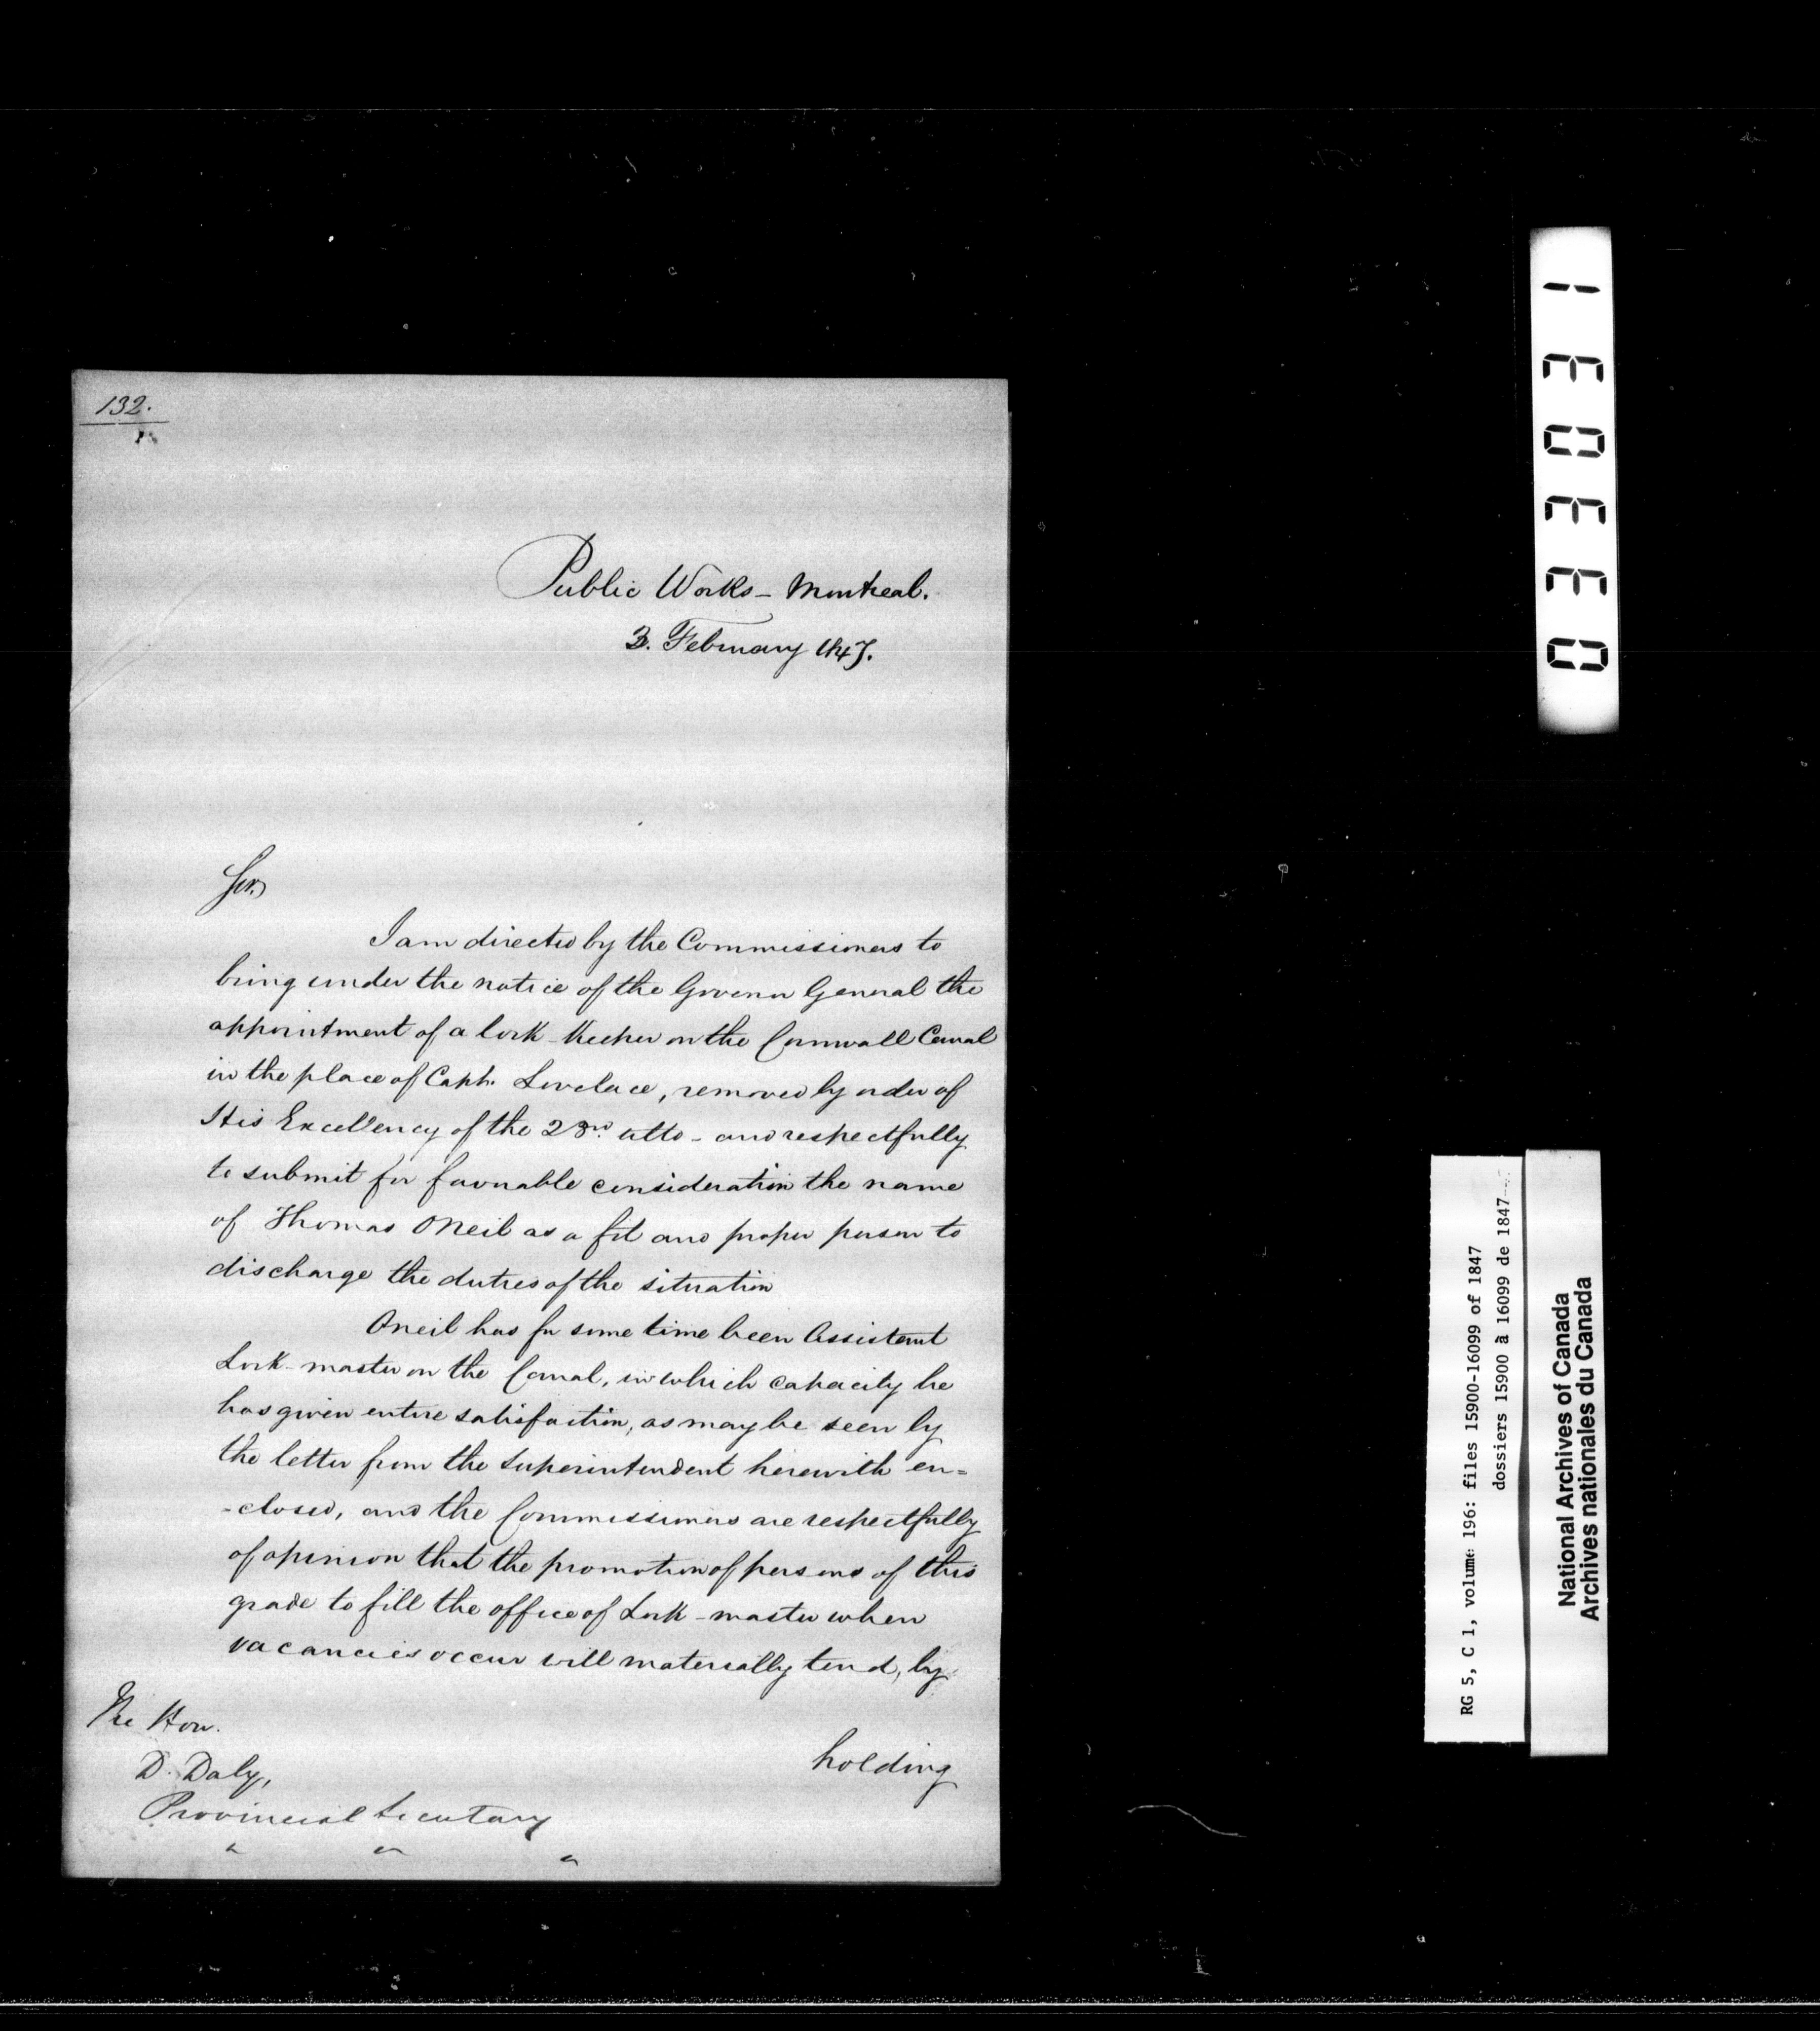 132.
Public Works - Montreal.
3. February 1847.
Sir,
I am directed by the Commissioners to
bring under the notice of the Governor General the
appointment of a lock-keeper on the Cornwall Canal
in the place of Capt. Lovelace, removed by order of
His Excellency of the 23rd. ulto - and respectfully
to submit for favorable consideration the name
of Thomas ONeil as a fit and proper person to
discharge the duties of the situation
Oneil has for some time been Assistant
Lock-master on the Canal, in which capacity he
has given entire satisfaction, as may be seen by
the letter from the Superintendent herewith en=
-closed, and the Commissioners are respectfully
of opinion that the promotion of persons of this
grade to fill the office of Lock-master when
vacancies occur will materially tend, by
holding
The Hon.
D. Daly,
Provincial Secretary
033031
RG 5, C 1, volume 196: files 15900-16099 of 1847
dossiers 15900 à 16099 de 1847
National Archives of Canada
Archives nationales du Canada